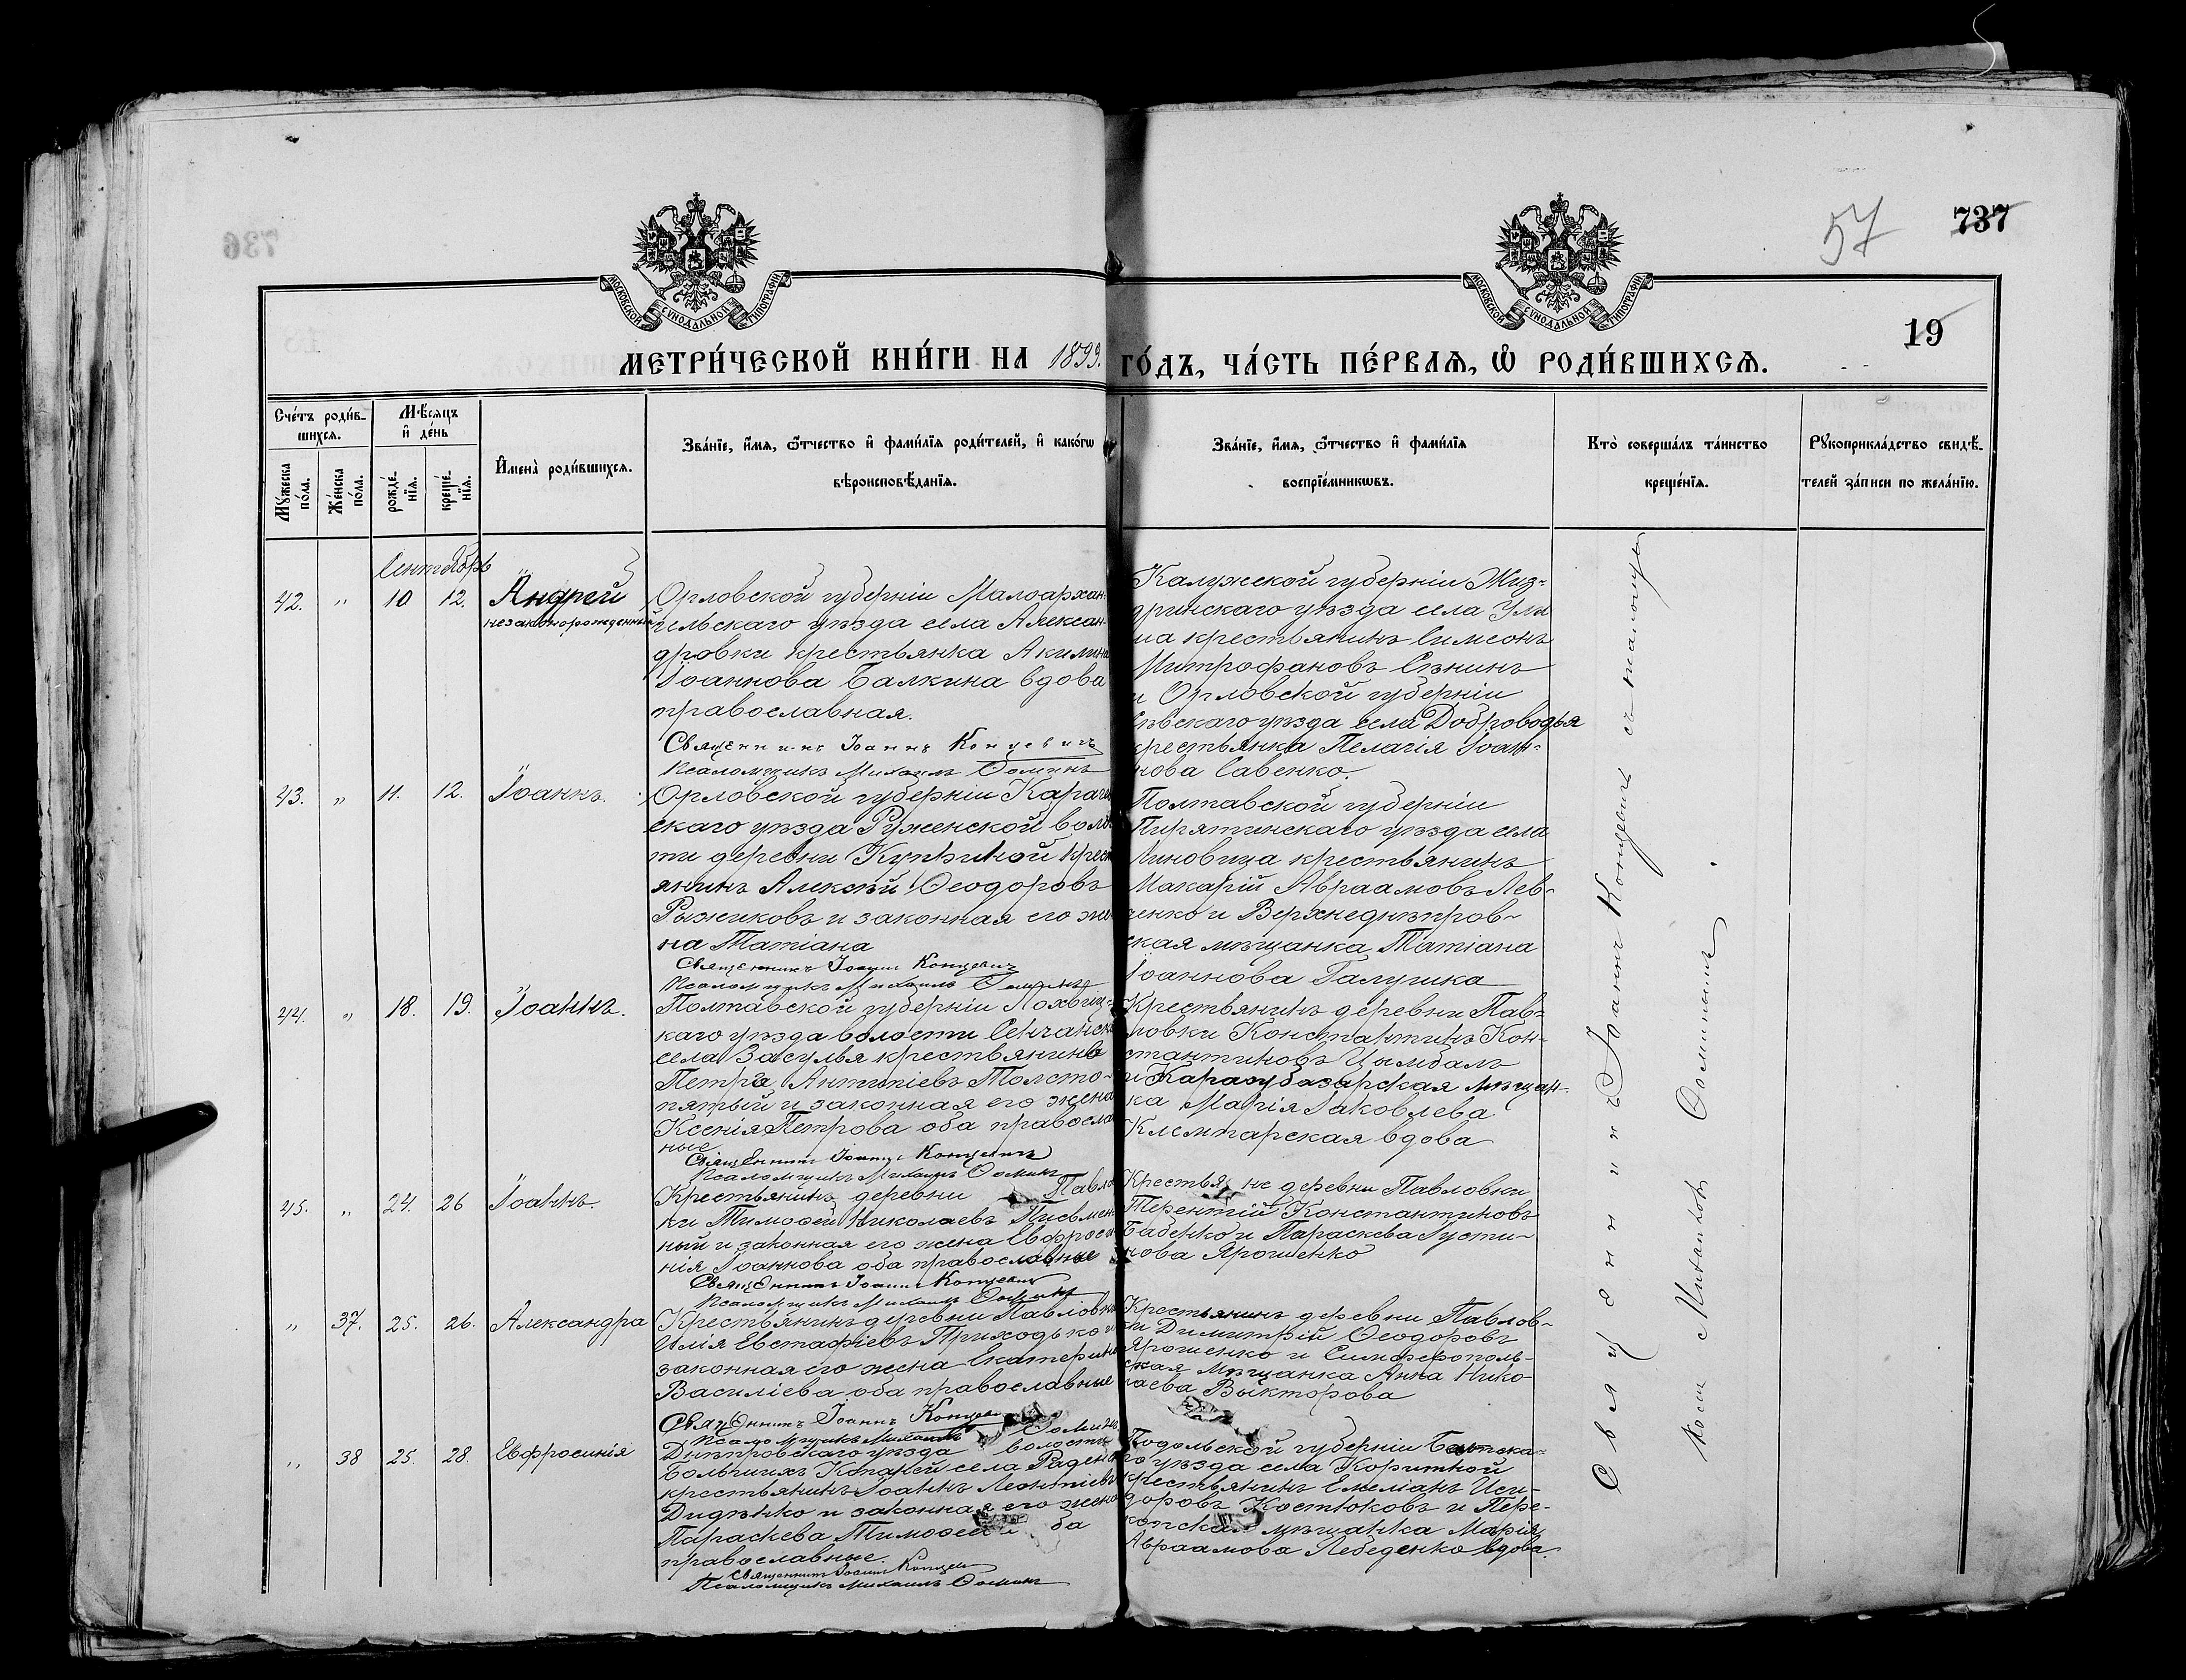 57
737
736
19
МОСКОВСКОЙ СѴНОДАЛЬНОЙ ТИПОГРАФІИ
МОСКОВСКОЙ СѴНОДАЛЬНОЙ ТИПОГРАФІИ
МЕТРИ́ЧЕСКОЙ КНИ́ГИ НА 1899. ГО́ДЪ, ЧА́СТЬ ПЕ́РВАѦ, Ѡ҆ РОДИ́ВШИХСѦ.
Сче́тъ роди́в-
шихсѧ.
Мꙋ́жеска по́ла.
Же́нска по́ла.
Мѣ́сѧцъ и҆ де́нь
рожде́-нїѧ.
креще́-нїѧ.
И҆мена̀ роди́вшихсѧ.
Зва́нїе, и҆́мѧ, ѻ҆́тчество и҆ фами́лїѧ роди́телей, и҆ како́гѡ
вѣроисповѣ́данїѧ.
Зва́нїе, и҆́мѧ, ѻ҆́тчество и҆ фами́лїѧ
воспрїе́мникѡвъ.
Кто̀ соверша́лъ та́инство
креще́нїѧ.
Рꙋкоприкла́дство свидѣ́-
телей за́писи по жела́нїю.
Сентябрь
42. " 10 12. Андрей
незаконорожденный
Орловской губерніи Малоархан-
гельскаго уѣзда села Алексан-
дровки крестьянка Акилина
Іоаннова Балкина вдова
православная.
Священникъ Іоаннъ Концевичъ
Псаломщикъ Михаилъ Ѳоминъ
Калужской губерніи Жиз-
дринскаго уѣзда села
крестьянинъ Симеонъ
Митрофановъ Сѣнинъ
и Орловской губерніи
Сѣвскаго уѣзда села Доброводья
крестьянка Пелагія Іоан-
нова Савенко.
43. " 11. 12. Іоаннъ.
Орловской губерніи Караче
скаго уѣзда Руженской волос
ти деревни крест
янинъ Алексѣй Ѳеодоровъ
Рыжиковъ и законная его же
на Татіана
Священникъ Іоаннъ Концевичъ
Псаломщикъ Михаилъ Ѳоминъ
Полтавской губерніи
Пирятинскаго уѣзда села
Линовица крестьянинъ
Макарій Авраамовъ Лев-
ченко и Верхнеднѣпров-
ская мѣщанка Татіана
Іоаннова Галушка
44. " 18. 19. Іоаннъ.
Полтавской губерніи Лохвиц-
каго уѣзда волости Сенчанск
села Засулья крестьянинъ
Петръ Антипіевъ Толсто-
пятый и законная его жена
Ксенія Петрова оба правосла
ные
Священникъ Іоаннъ Концевичъ
Псаломщикъ Михаилъ Ѳоминъ
Крестьянинъ деревни Пав-
ловки Константинъ Кон-
стантиновъ Цымбалъ
и Карасубазарская мѣщан-
ка Марія Іаковлева
Клемпарская вдова
45. " 24. 26 Іоаннъ.
Крестьянинъ деревни Павло
ки Тимоѳей Николаевъ Письмен-
ный и законная его жена Евфроси
нія Іоаннова оба православные
Священникъ Іоаннъ Концевичъ
Псаломщикъ Михаилъ Ѳоминъ
Крестья не деревни Павловки
Терентій Константиновъ
Бабенко и Параскева Іусти-
нова Ярошенко
" 37. 25. 26. Александра
Крестьянинъ деревни Павловки
Илія Евстафіевъ Приходько и
законная его жена Екатерина
Василіева оба православные
Священникъ Іоаннъ Концев
Псаломщикъ Михаилъ Ѳоминъ
Крестьянинъ деревни Павлов-
ки Димитрій Ѳеодоровъ
Ярошенко и Симферополь-
ская мѣщанка Анна Нико-
лаева Выкторова
" 38 25. 28. Евфросинія
Днѣпровскаго уѣзда волости
Большихъ Копаней села Раденс
крестьянинъ Іоаннъ Леонтіевъ
Дидѣнко и законная его жена
Параскева Тимоѳеев ба
православные.
Священникъ Іоаннъ Концев
Псаломщикъ Михаилъ Ѳоминъ
Подольской губерніи Балтска-
го уѣзда села Коритной
крестьянинъ Емеліанъ Иси-
доровъ Костюковъ и Пере-
копская мѣщанка Марія
Авраамова Лебеденко вдова.
Священникъ Іоаннъ Концевичъ съ псаломщи
Михаиломъ Ѳоминымъ